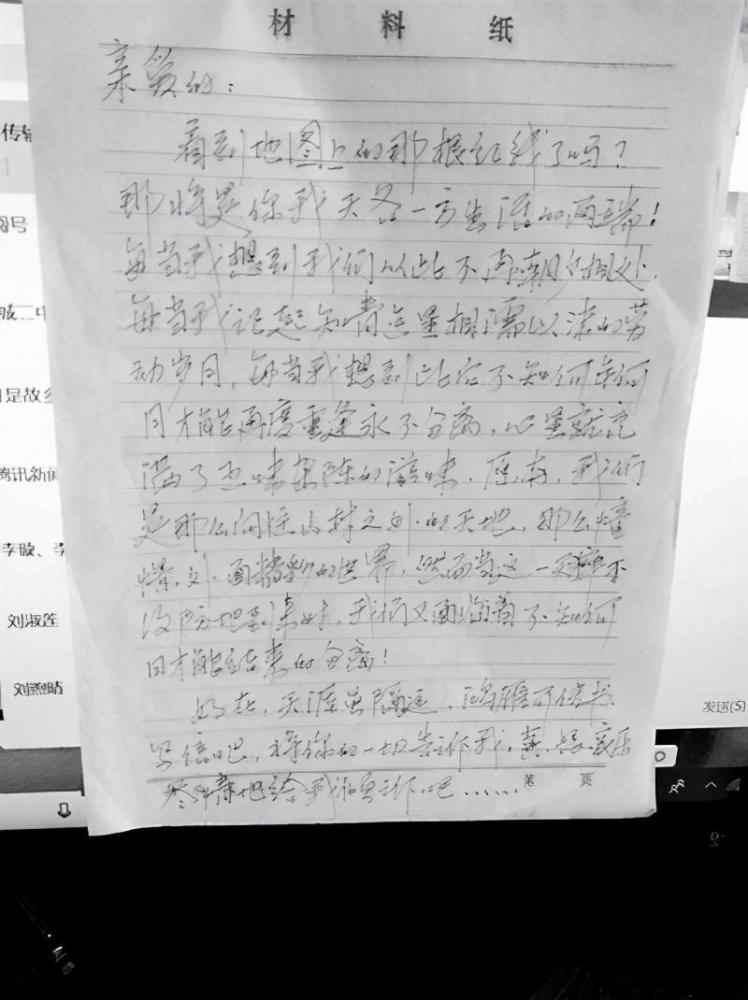 材料纸
亲爱的：
看到地图上的那根红线了吗？
那将是你我天各一方生活的两端！
每当我想到我们从此不再朝夕相处，
每当我记起知青点里相濡以沫的劳
动岁月，每当我想到此后不知何年何
月才能再度重逢永不分离，心里就充
满了五味杂陈的滋味。原本，我们
是那么向往山村之外的天地，那么憧
憬外面精彩的世界，然而当这一天
没防地到来时，我们又面临着不知何
日才能结束的分离！
好在，天涯虽隔远，鸿雁可传书
写信吧，将你的一切告诉我，喜怒哀乐
尽情地给我倾诉吧……
第 页
传输
号
城二中
是故乡
腾讯新闻
李
刘淑莲
刘熙晴
发送(S)